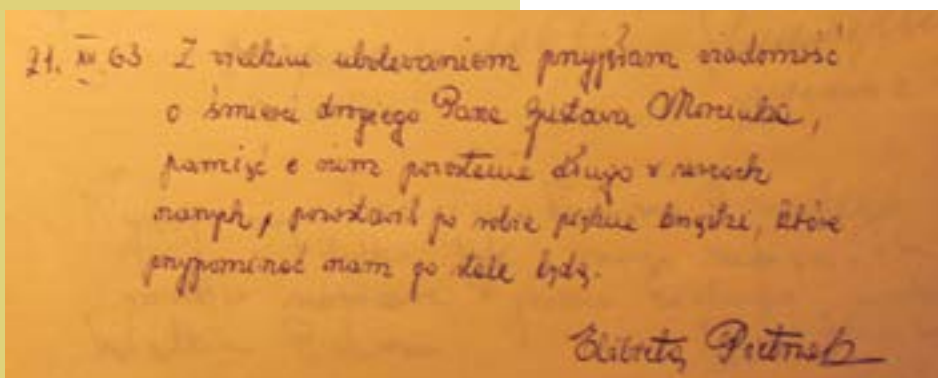 21. XII 63 Z wielkim ubolewaniem przyjęłam wiadomość
o śmierci drogiego Pana Gustawa Morcinka,
pamięć o nim pozostanie długo w sercach
naszych, pozostawił po sobie piękne książki, które
przypominać nam go stale będą.
Elżbieta